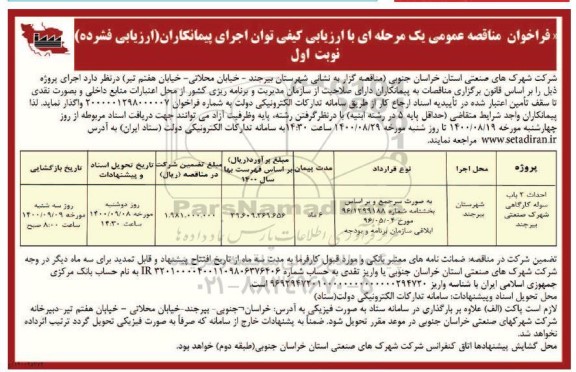 « فراخوان مناقصه عمومی یک مرحله ای با ارزیابی کیفی توان اجرای پیمانکاران(ارزیابی فشرده)
نوبت اول
شرکت شهرک های صنعتی استان خراسان جنوبی (مناقصه گزار به نشانی شهرستان بیرجند - خیابان محلاتی- خیابان هفتم تیر) درنظر دارد اجرای پروژه
ذیل را بر اساس قانون برگزاری مناقصات به پیمانکاران دارای صلاحیت از سازمان مدیریت و برنامه ریزی کشور از محل اعتبارات منابع داخلی و بصورت نقدی
تا سقف تأمین اعتبار شده در تأییدیه اسناد ارجاع کار از طریق سامانه تدارکات الکترونیکی دولت به شماره فراخوان ۲۰۰۰۰۰۱۲۹۸۰۰۰۰۰۷ واگذار نماید. لذا
پیمانکاران واجد شرایط متقاضی (حداقل پایه ۵ در رشته ابنیه) با درنظرگرفتن رشته، پایه وظرفیت آزاد می توانند جهت دریافت اسناد مربوطه از روز
چهارشنبه مورخه ۱۴۰۰/۰۸/۱۹ تا روز شنبه مورخه ۱۴۰۰/۰۸/۲۹ ساعت ۱۴:۳۰به سامانه تدارکات الکترونیکی دولت (ستاد ایران) به آدرس
www.setadiran.ir مراجعه نمایند.
پروژه
محل اجرا
نوع قرارداد
مدت پیمان
مبلغ برآورد(ریال) بر اساس فهرست بها سال ۱۴۰۰
مبلغ تضمین شرکت در مناقصه (ریال)
تاریخ تحویل اسناد و پیشنهادات
تاریخ بازگشایی
احداث ۲ باب سوله کارگاهی شهرک صنعتی بیرجند
شهرستان بیرجند
به صورت سرجمع و بر اساس بخشنامه شماره ۹۶/۱۲۹۹۱۸۸ مورخ ۹۶/۰۵/۰۴ ابلاغی سازمان برنامه و بودجه
۶ ماه
۳۹،۶۰۹،۳۶۹،۶۵۶
۱،۹۸۱،۰۰۰،۰۰۰
روز دوشنبه مورخه ۱۴۰۰/۰۹/۰۸ ساعت ۱۴:۳۰
روز سه شنبه مورخه ۱۴۰۰/۰۹/۰۹ ساعت ۸:۰۰ صبح
تضمین شرکت در مناقصه: ضمانت نامه های معتبر بانکی و مورد قبول کارفرما به مدت سه ماه از تاریخ افتتاح پیشنهاد و قابل تمدید برای سه ماه دیگر در وجه
شرکت شهرک های صنعتی استان خراسان جنوبی یا واریز نقدی به حساب شماره IR به نام حساب بانک مرکزی
جمهوری اسلامی ایران با شناسه واریز است
محل تحویل اسناد وپیشنهادات: سامانه تدارکات الکترونیکی دولت(ستاد)
لازم است پاکت (الف) علاوه بر بارگذاری در سامانه ستاد به صورت فیزیکی به آدرس: خراسان جنوبی- بیرجند- خیابان محلاتی - خیابان هفتم تیر-دبیرخانه
شرکت شهرکهای صنعتی خراسان جنوبی در موعد مقرر تحویل شود. ضمناً به پشنهادات خارج از سامانه که صرفاً به صورت فیزیکی تحویل گردد ترتیب اثرداده
نخواهد شد.
محل گشایش پیشنهادها اتاق کنفرانس شرکت شهرک های صنعتی استان خراسان جنوبی(طبقه دوم) خواهد بود.